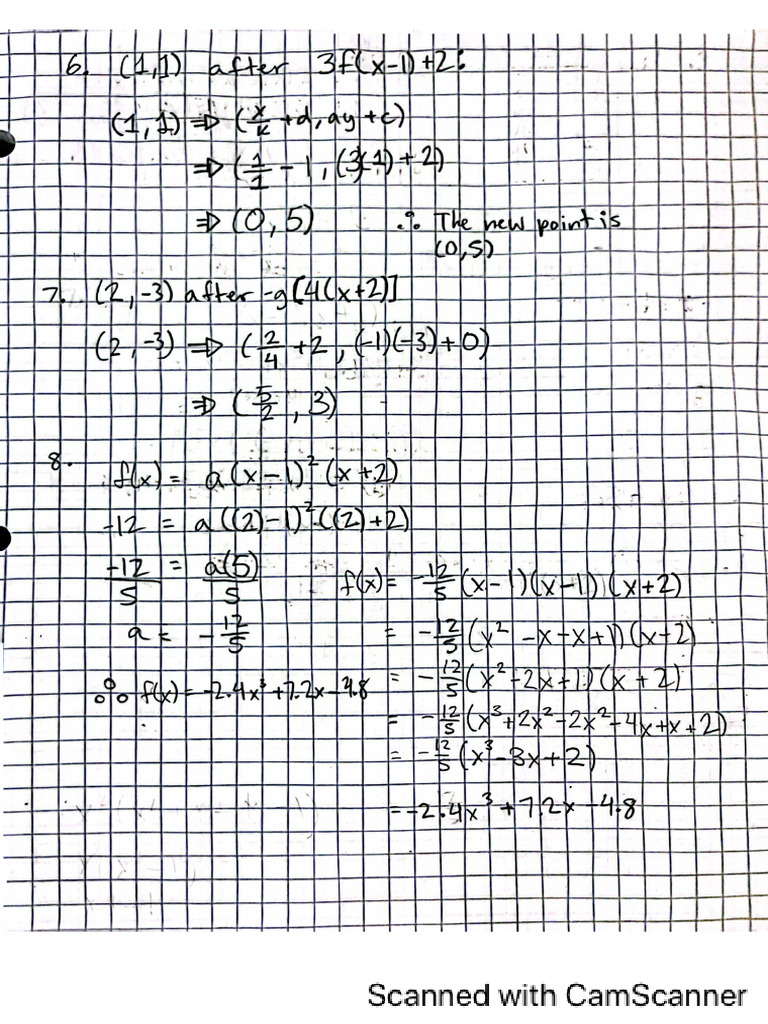 6. (1,1) after 3f(x-1)+2:
(1,1) ⇒ (x/k + d, ay + c)
⇒ (1/1 - 1, (3(1) + 2)
⇒ (0,5) ∴ The new point is
(0,5)
7. (2,-3) after -g[4(x+2)]
(2,-3) ⇒ (2/4 + 2, (-1)(-3) + 0)
⇒ (5/2, 3)
8. f(x) = a(x-1)²(x+2)
-12 = a((2)-1)²((2)+2)
-12/5 = a(5)/5
a = -12/5
∴ f(x) = -2.4x³+7.2x-4.8
f(x) = -12/5(x-1)(x-1)(x+2)
= -12/5(x² -x-x+1)(x+2)
= -12/5(x²-2x+1)(x+2)
= -12/5(x³+2x²-2x²-4x+x+2)
= -12/5(x³-3x+2)
= -2.4x³+7.2x-4.8
Scanned with CamScanner